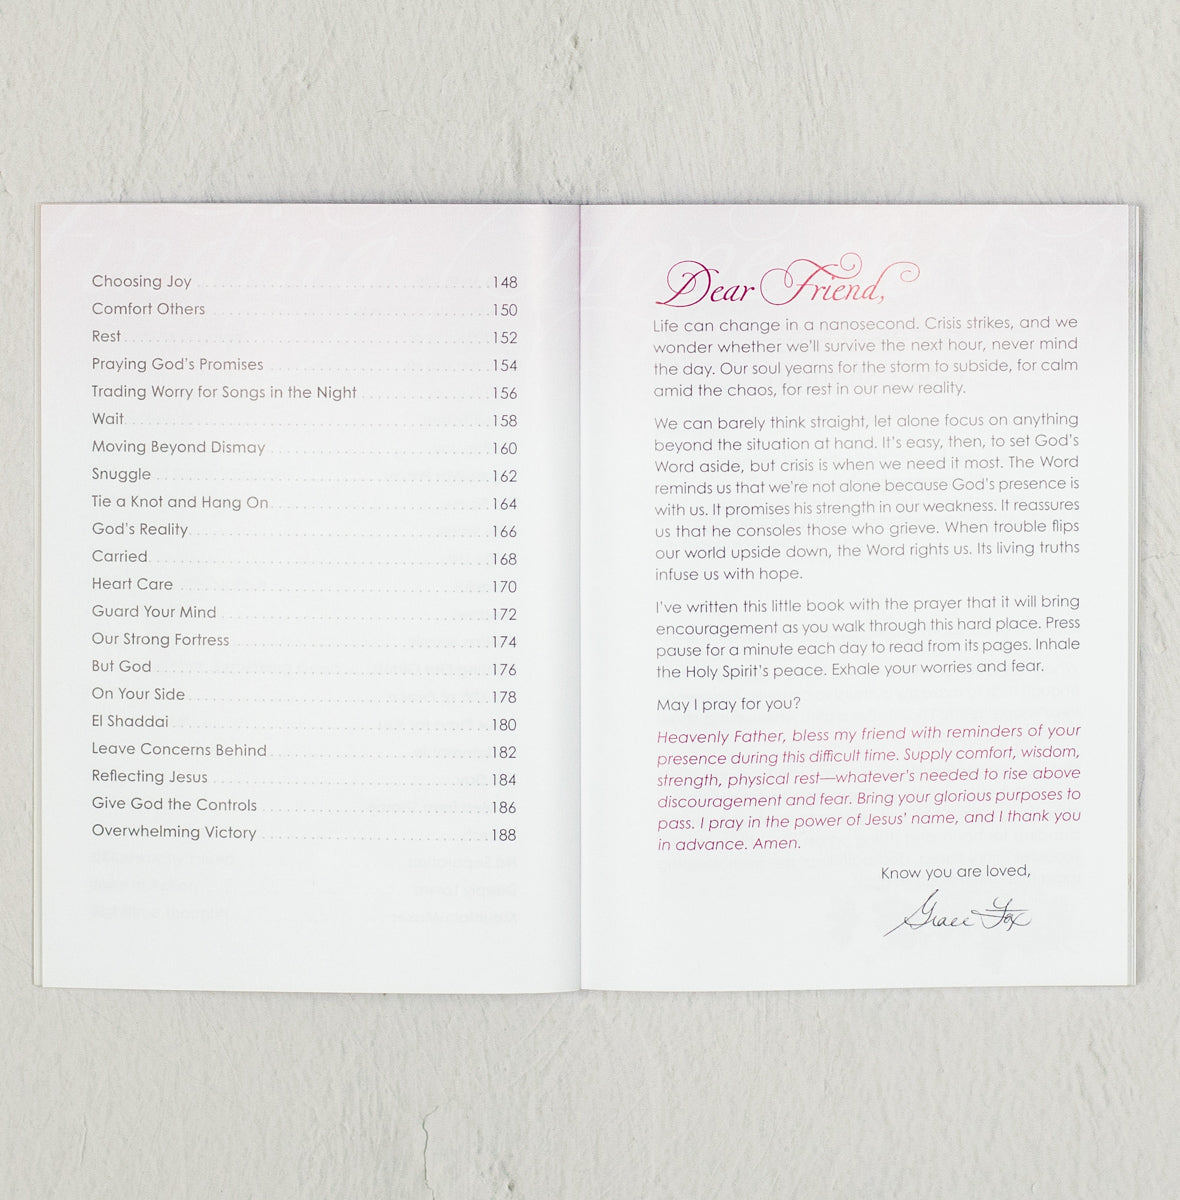 Choosing Joy 148
Comfort Others 150
Rest 152
Praying God's Promises 154
Trading Worry for Songs in the Night 156
Wait 158
Moving Beyond Dismay 160
Snuggle 162
Tie a Knot and Hang On 164
God's Reality 166
Carried 168
Heart Care 170
Guard Your Mind 172
Our Strong Fortress 174
But God 176
On Your Side 178
El Shaddai 180
Leave Concerns Behind 182
Reflecting Jesus 184
Give God the Controls 186
Overwhelming Victory 188
Dear Friend,
Life can change in a nanosecond. Crisis strikes, and we
wonder whether we'll survive the next hour, never mind
the day. Our soul yearns for the storm to subside, for calm
amid the chaos, for rest in our new reality.
We can barely think straight, let alone focus on anything
beyond the situation at hand. It's easy, then, to set God's
Word aside, but crisis is when we need it most. The Word
reminds us that we're not alone because God's presence is
with us. It promises his strength in our weakness. It reassures
us that he consoles those who grieve. When trouble flips
our world upside down, the Word rights us. Its living truths
infuse us with hope.
I've written this little book with the prayer that it will bring
encouragement as you walk through this hard place. Press
pause for a minute each day to read from its pages. Inhale
the Holy Spirit's peace. Exhale your worries and fear.
May I pray for you?
Heavenly Father, bless my friend with reminders of your
presence during this difficult time. Supply comfort, wisdom,
strength, physical rest—whatever's needed to rise above
discouragement and fear. Bring your glorious purposes to
pass. I pray in the power of Jesus' name, and I thank you
in advance. Amen.
Know you are loved,
Grace Fox